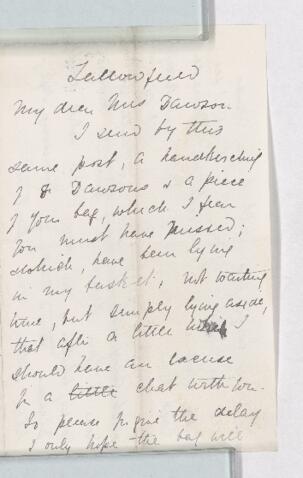 Fallowfield
My dear Mrs Dawson.
I send by this
same post, a handkerchief
of Dawsons & a piece
of your bag, which I fear
you must have missed;
which, have been lying
in my basket, not wasting
time, but simply lying aside,
that after a little while I
should have an excuse
for a little chat with you.
So please forgive the delay
I only hope the bag will